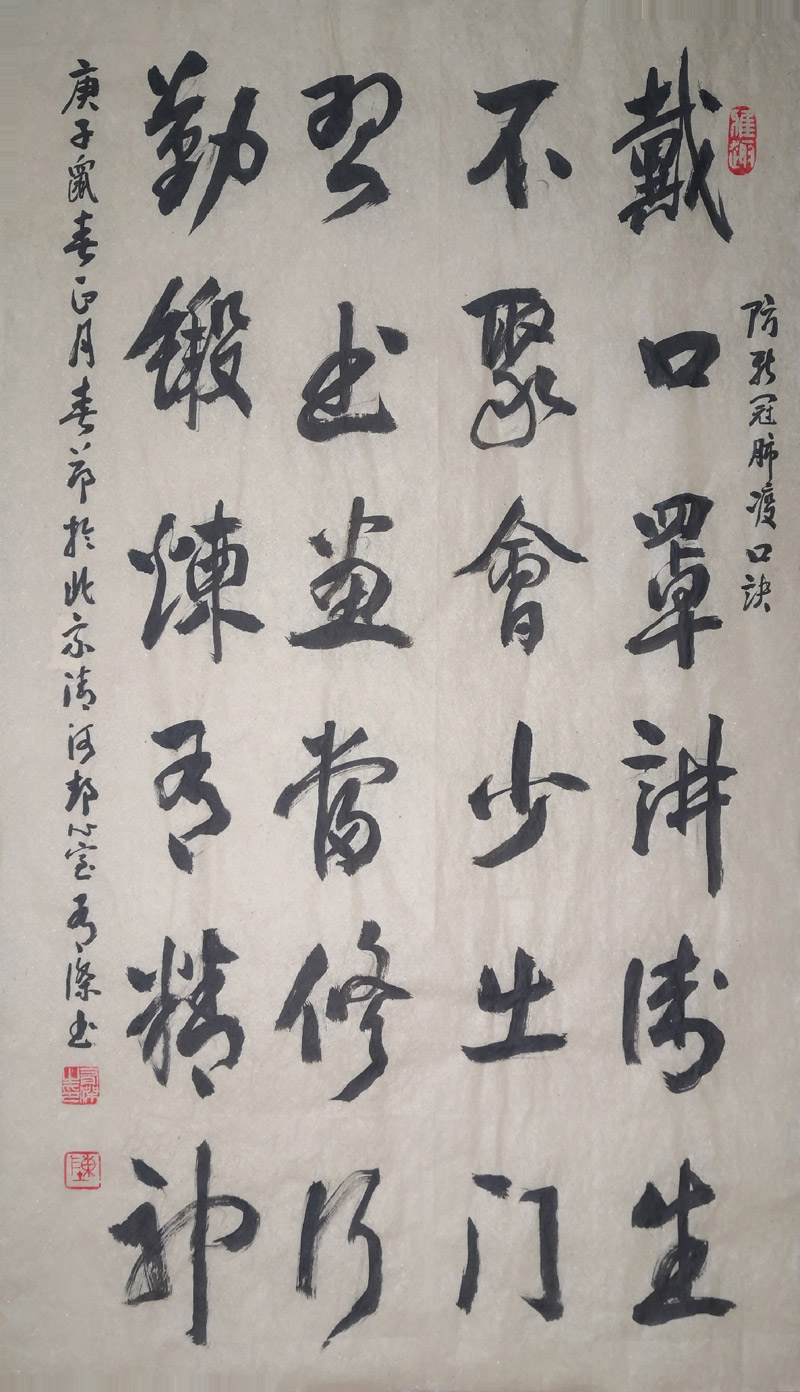 雅趣
防新冠肺疫口訣
戴口罩讲衛生
不聚會少出门
習书畫當修行
勤鍛煉有精神
庚子鼠春正月春节於北京清河心室有书
陳